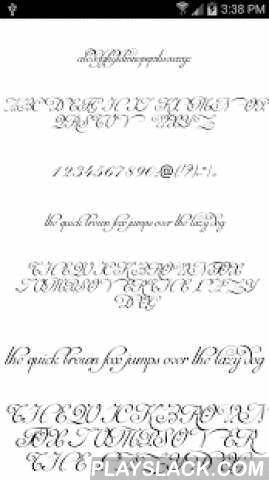 3:38 PM
abcdefghijklmnopqrstuvwxyz
ABCDEFGHIJKLMNOP
QRSTUVWXYZ
1234567890.:@(!?)
the quick brown fox jumps over the lazy dog
THE QUICK BROWN FOX
JUMPS OVER THE LAZY
DOG
the quick brown fox jumps over the lazy dog
THE QUICK BROWN
FOX JUMPS OVER
THE LAZY
PLAYSLACK.COM